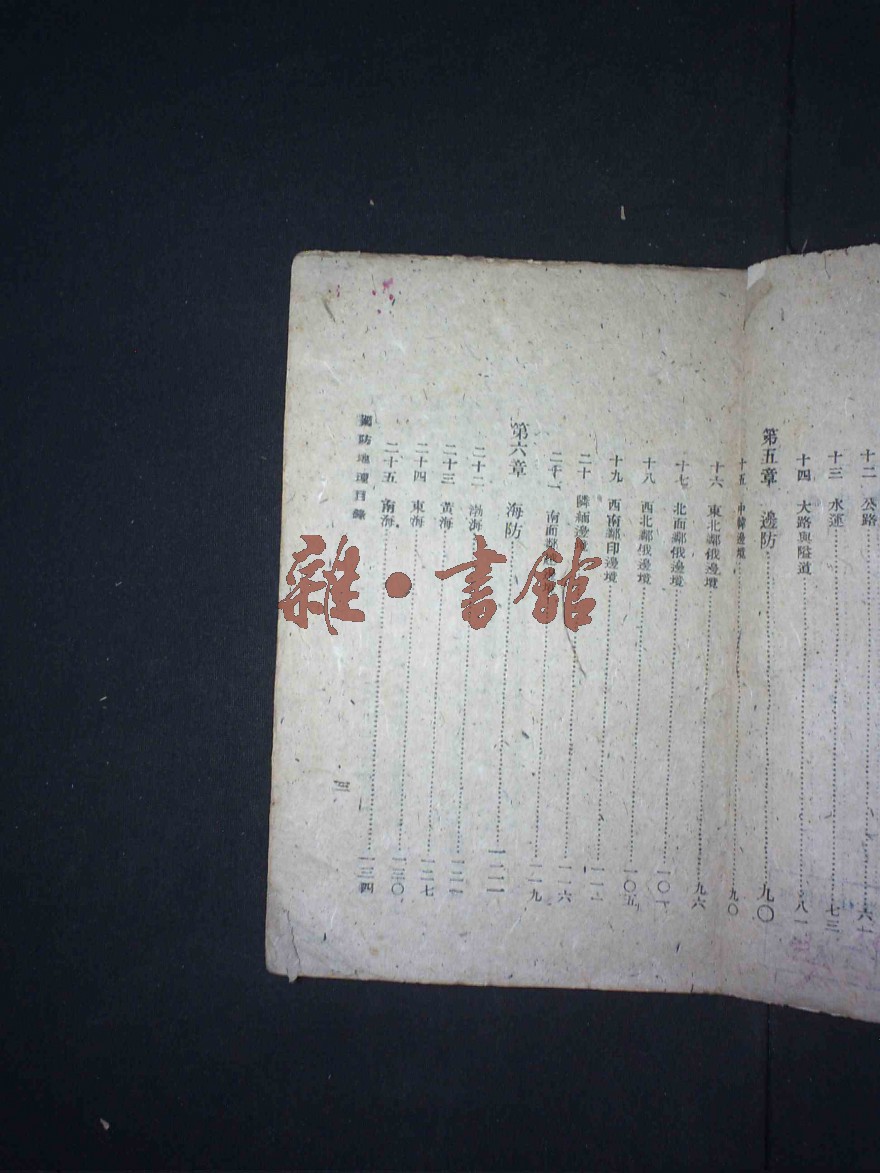 十二 公路 六十
十三 水運 七三
十四 大路與隘道 八一
第五章 邊防 九〇
十五 中韓邊境 九〇
十六 東北鄰俄邊境 九六
十七 北面鄰俄邊境 一〇一
十八 西北鄰俄邊境 一〇五
十九 西南鄰印邊境 一一
二十 隣緬邊 一一六
二十一 南面鄰 一一九
第六章 海防 一二一
二十二 渤海 一二一
二十三 黃海 一二七
二十四 東海 一三〇
二十五 南海 一三四
國防地理目錄
三
雜·書館